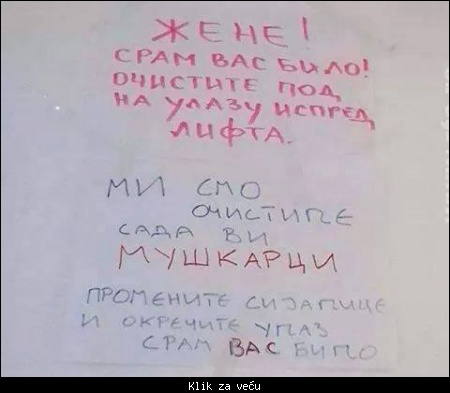 ЖЕНЕ!
СРАМ ВАС БИЛО!
ОЧИСТИТЕ ПОД
НА УЛАЗУ ИСПРЕД
ЛИФТА.
МИ СМО
ОЧИСТИЛЕ
САДА ВИ
МУШКАРЦИ
ПРОМЕНИТЕ СИЈАЛИЦЕ
И ОКРЕЧИТЕ УЛАЗ
СРАМ ВАС БИЛО
Klik za veču